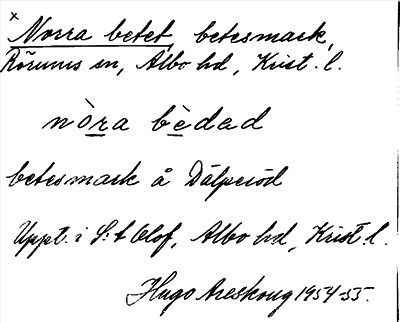 x
Norra betet, betesmark,
Rörums sn, Albo hd, Krist. l.
nòra bèdad
betesmark å Dälperöd
Uppt. i S:t Olof, Albo hd, Krist. l.
Hugo Areskoug 1954-55.